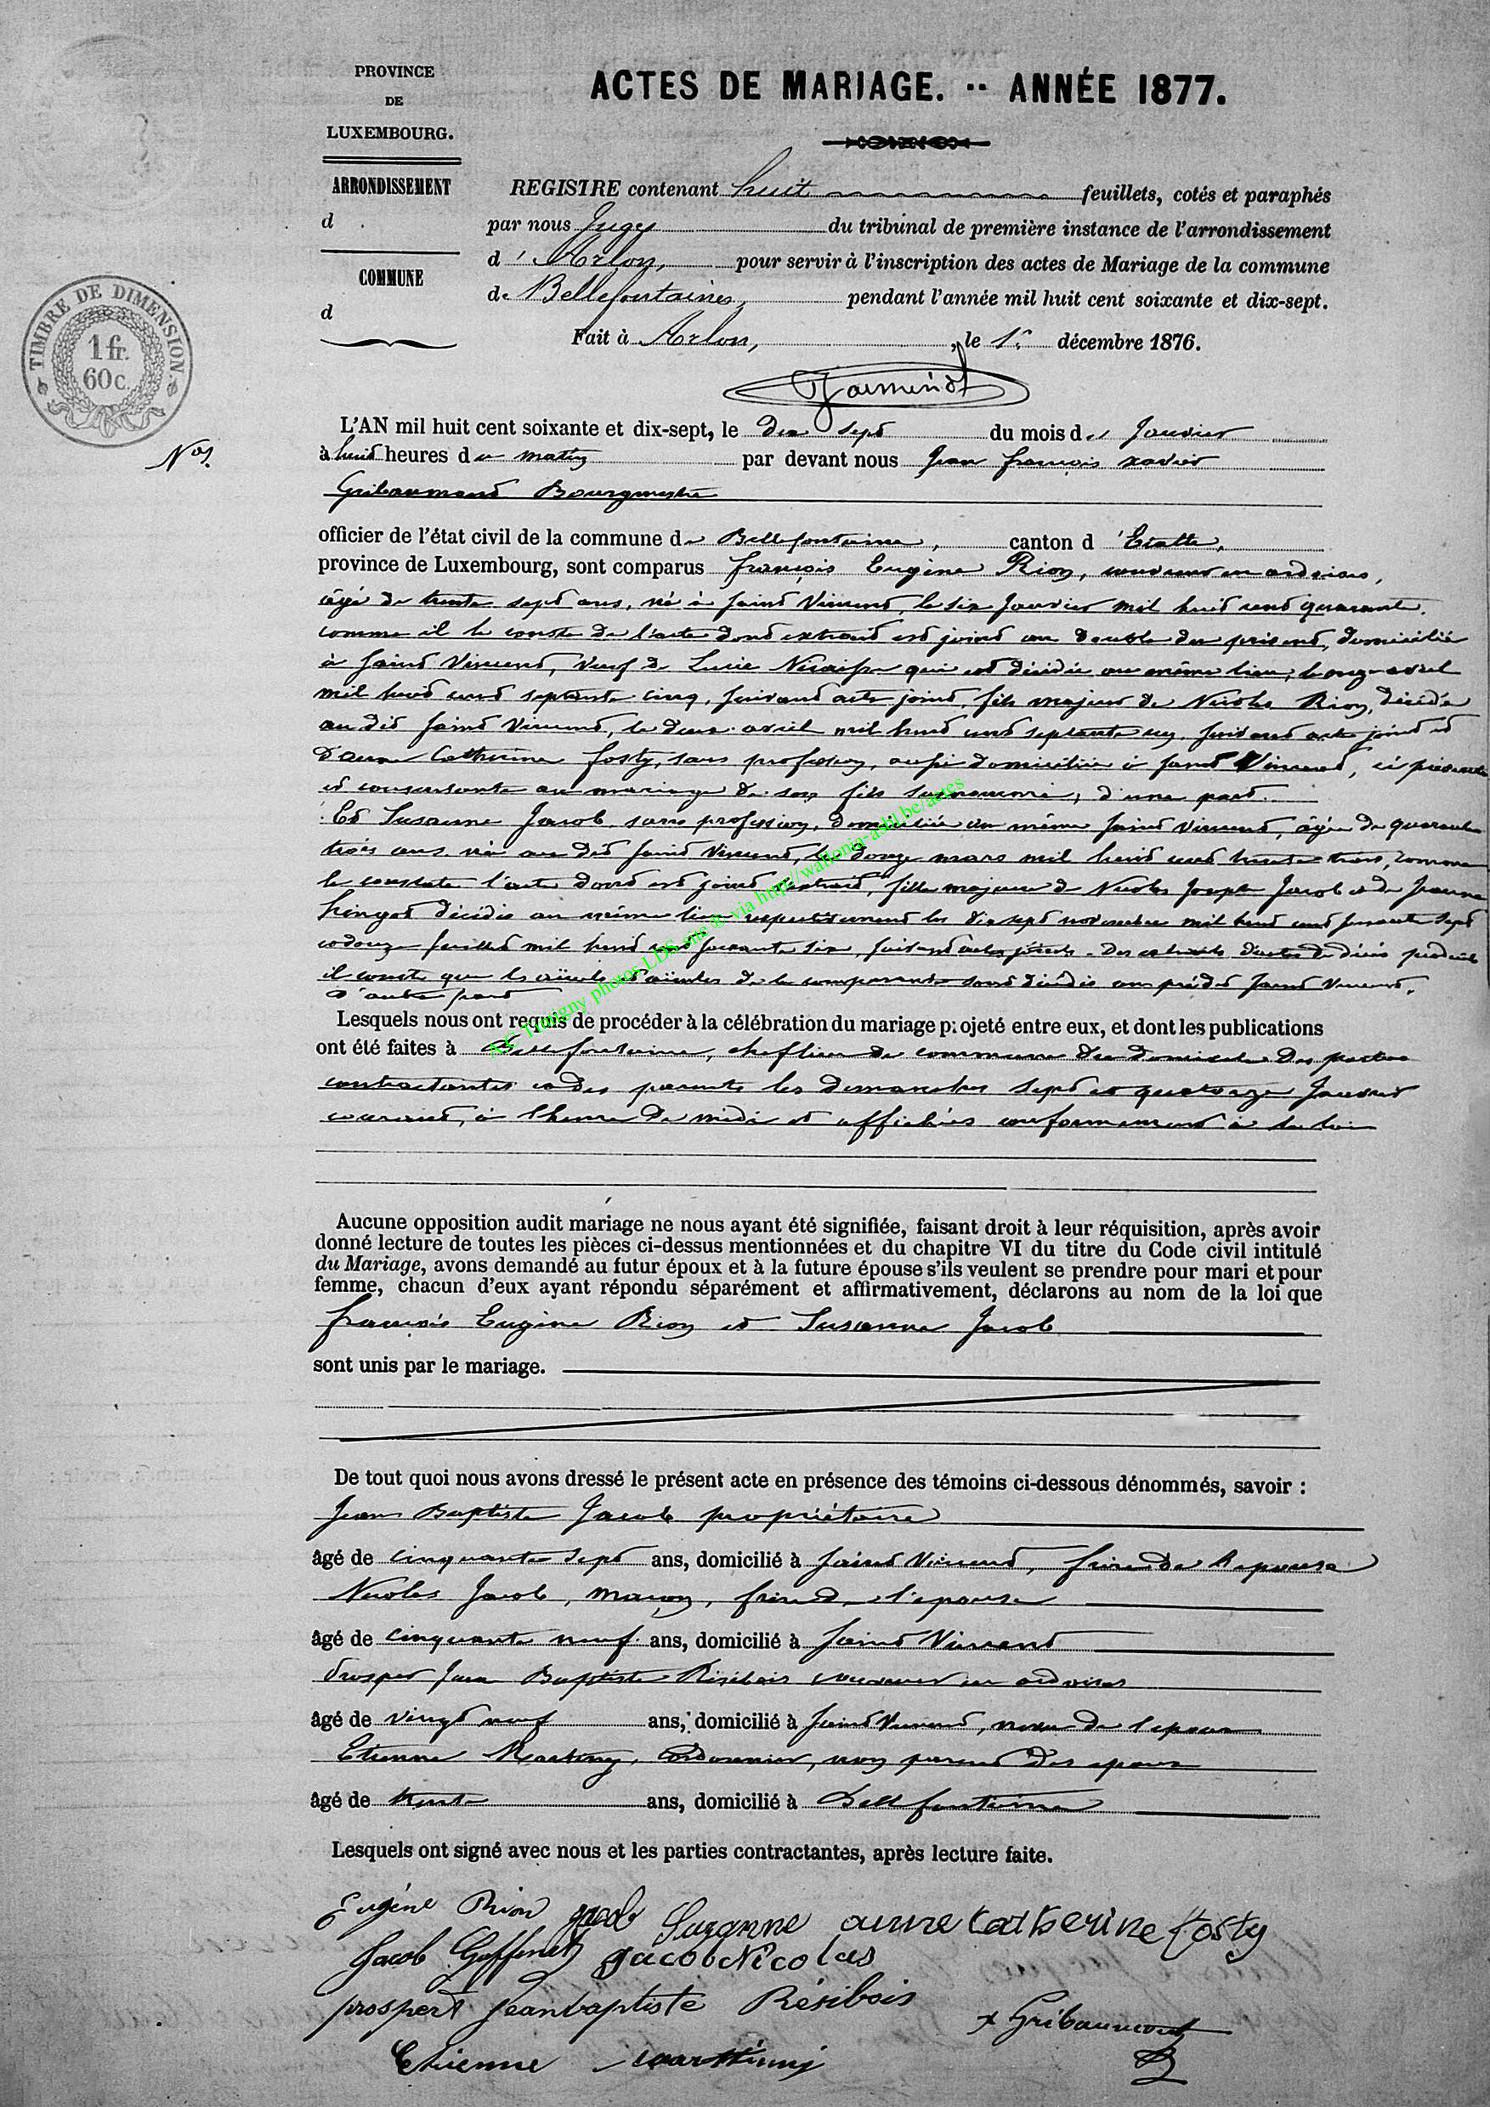 PROVINCE
DE
LUXEMBOURG.
ARRONDISSEMENT
d
COMMUNE
d
TIMBRE DE DIMENSION.
1 fr.
60 c.
ACTES DE MARIAGE. -- ANNÉE 1877.
REGISTRE contenant huit feuillets, cotés et paraphés
par nous Juge du tribunal de première instance de l'arrondissement
d'Arlon, pour servir à l'inscription des actes de Mariage de la commune
de Bellefontaine, pendant l'année mil huit cent soixante et dix-sept.
Fait à Arlon, le 1r décembre 1876.
No 1.
L'AN mil huit cent soixante et dix-sept, le dix sept du mois de Janvier
à huit heures du matin par devant nous Jean françois xavier
Gribaumont Bourgmestre
officier de l'état civil de la commune de Bellefontaine, canton d'Etalle,
province de Luxembourg, sont comparus françois Eugène Rion, couvreur en ardoises,
âgé de trente sept ans, né à Saint Vincent, le six Janvier mil huit cent quarante,
comme il le conste de l'acte dont extrait est joint au double du présent, domicilié
à Saint Vincent, veuf de Lucie qui est décédée au même lieu, le onze avril
mil huit cent septante cinq, suivant acte joint, fils majeur de Nicolas Rion, décédé
au dit Saint Vincent, le deux avril mil huit cent septante suivant acte joint et
d'anne Catherine fosty, sans profession, aussi domiciliée à Saint Vincent, ici présente
et consentante au mariage de son fils susnommé, d'une part.
Et Susanne Jacob sans profession, domiciliée au même Saint Vincent, âgée de quarante
trois ans née au dit Saint Vincent, le douze mars mil huit cent trente trois, comme
le constate l'acte dont est joint extrait, fille majeure de Nicolas Joseph Jacob et de Jeanne
décédés au même lieu respectivement les dix sept novembre mil huit cent soixante sept
et douze juillet mil huit cent soixante six, suivant actes joints. Des extraits d'actes de décès produits
il conste que les aïeuls et aïeules de la comparante sont décédés au prédit Saint Vincent,
d'autre part
AC Tintigny photos LDS site © via http://wallonia-asbl.be/actes
Lesquels nous ont requis de procéder à la célébration du mariage projeté entre eux, et dont les publications
ont été faites à Bellefontaine, chef lieu de commune du domicile des parties
contractantes et des parents les dimanches sept et quatorze Janvier
courant, à l'heure de midi et affichées conformément à la loi
Aucune opposition audit mariage ne nous ayant été signifiée, faisant droit à leur réquisition, après avoir
donné lecture de toutes les pièces ci-dessus mentionnées et du chapitre VI du titre du Code civil intitulé
du Mariage, avons demandé au futur époux et à la future épouse s'ils veulent se prendre pour mari et pour
femme, chacun d'eux ayant répondu séparément et affirmativement, déclarons au nom de la loi que
françois Eugène Rion et Susanne Jacob
sont unis par le mariage.
De tout quoi nous avons dressé le présent acte en présence des témoins ci-dessous dénommés, savoir :
Jean Baptiste Jacob propriétaire
âgé de cinquante sept ans, domicilié à Saint Vincent, frère de l'epouse
Nicolas Jacob, maçon, frère de l'epouse
âgé de cinquante neuf ans, domicilié à Saint Vincent
Prosper Jean Baptiste Résibois couvreur en ardoises
âgé de vingt neuf ans, domicilié à Saint Vincent, neveu de l'epoux
Etienne Martiny, Cordonnier, non parent des epoux
âgé de trente ans, domicilié à Bellefontaine
Lesquels ont signé avec nous et les parties contractantes, après lecture faite.
Eugéne Rion Jacob Suzanne anne Catherine fosty
Jacob Goffinet Jacob Nicolas
prospert Jeanbaptiste Résibois
x Gribaumont
Etienne Marttiny